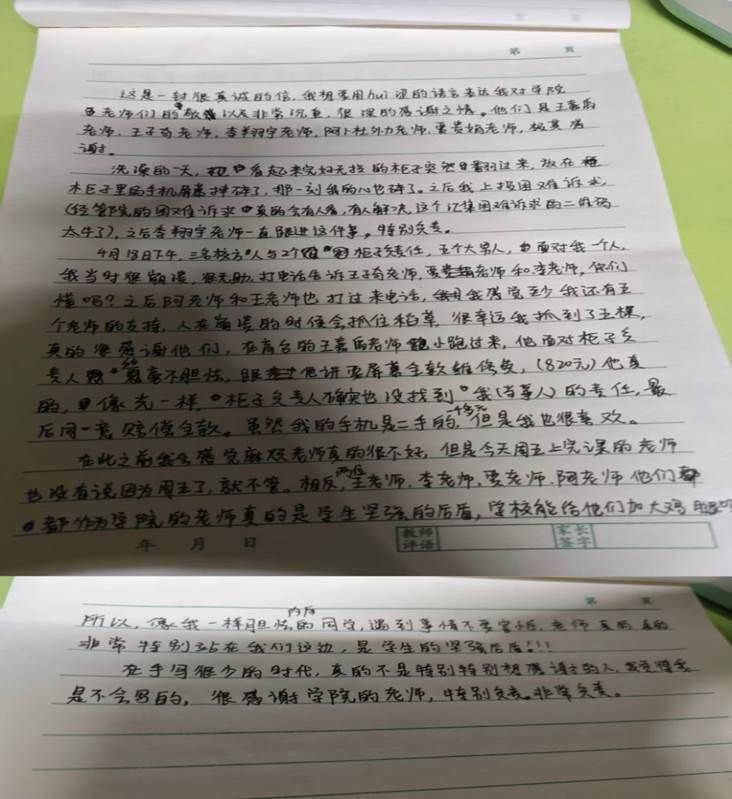 第 页
这是一封很真诚的信,我想要用hui涩的语言表达我对学院
老师们的敬意以及非常沉重,很深的感谢之情。他们是王嘉禹
老师,王子荀老师,李翔宇老师,阿卜杜外力老师,贾贵娟老师,极其感
谢。
洗澡的一天,看起来完好无损的柜子突然倒过来,放在
木柜子里的手机屏幕摔碎了,那一刻我的心也碎了。之后我上报困难诉求,
(经管院的困难诉求真的会有人看,有人解决,这个收集困难诉求的二维码
太牛了),之后李翔宇老师一直跟进这件事。特别负责。
4月18日下午,三名校方人与2个柜子责任,五个大男人,面对我一个人,
我当时很崩溃,很无助,打电话告诉王子荀老师,贾老师和李老师,你们
懂吗?之后阿老师和王老师也打过来电话,我感觉至少我还有五
个老师的支持,人在崩溃的时候会抓住稻草,很幸运我抓到了五棵,
真的很感谢他们,在育台的王嘉禹老师小跑过来,他面对柜子负
责人丝毫不胆怯,他讲要屏幕全款维修费,(820元)他真
的,像光一样,柜子负责人确实也没找到我(当事人)的责任,最
后同意赔偿全款。虽然我的手机是二手的,一千多元但是我也很喜欢。
在此之前我会感觉麻烦老师真的很不好,但是今天周五上完课的老师
也没有说因为周五了,就不管。相反,两位王老师,李老师,贾老师,阿老师他们
都作为学院的老师真的是学生坚强的后盾,学校能给他们加大鸡腿吗
年 月 日
教师评语 家长签字
第 页
所以,像我一样胆怯内向的同学,遇到事情不要害怕,老师真的真的
非常特别站在我们这边,是学生的坚强后盾!!!
在手写很少的时代,真的不是特别特别想感谢的人,我觉得我
是不会写的,很感谢学院的老师,特别负责。非常负责。